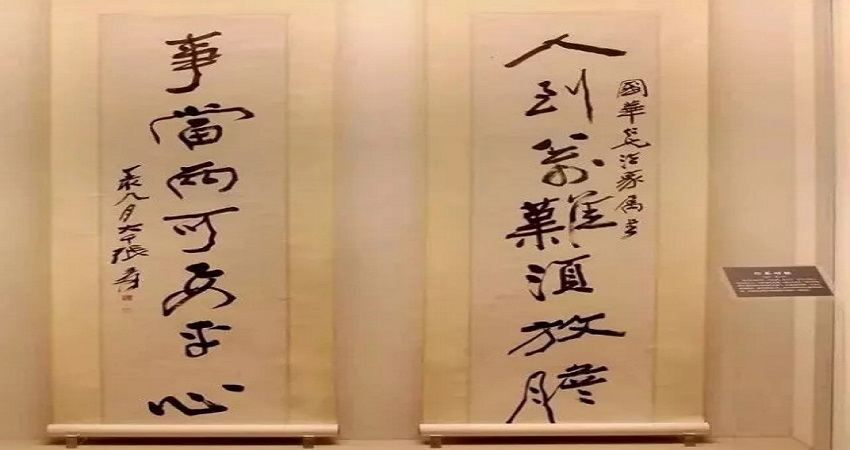 人到萬難須放膽
國華法家屬書
事當兩可要平心
八月大千張爰